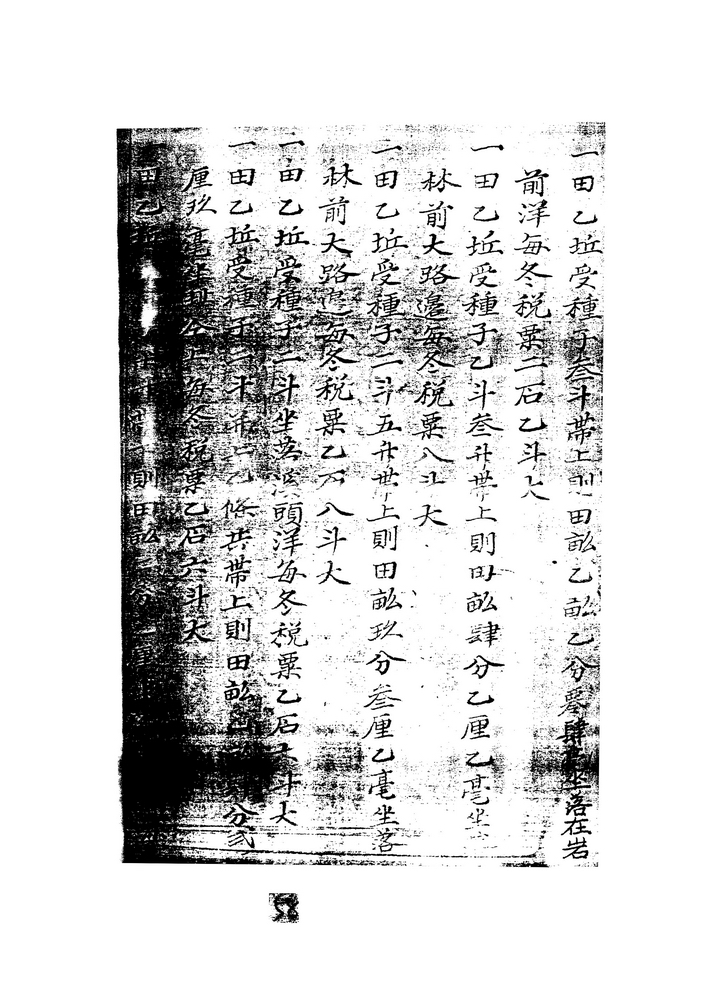 一田乙坵受種子叁斗帶上則田畝乙畝乙分零肆毫坐落在岩
前洋每冬稅粟二石乙斗大
一田乙坵受種子乙斗叁升帶上則田畝肆分乙厘乙毫坐
林前大路邊每冬稅粟八斗大
一田乙坵受種子二斗五升帶上則田畝玖分叁厘乙毫坐落
林前大路邊每冬稅粟乙石八斗大
一田乙坵受種子二斗坐落溪頭洋每冬稅粟乙石六斗大
一田乙坵受種子二斗乙條共帶上則田畝分弍
厘玖毫坐上每冬稅粟乙石六斗大
田乙坵則田畝分乙厘